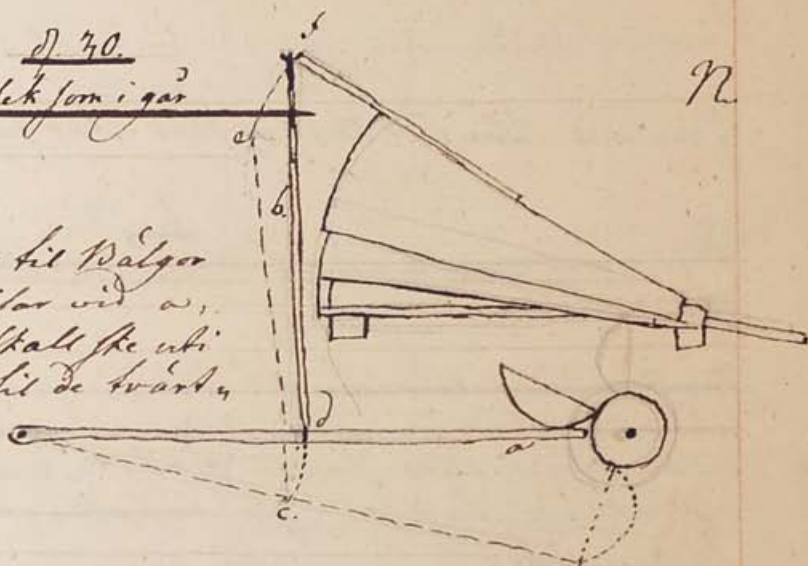 d. 30.
som i går
til Bälgor
vid a,
skall ske uti
til de tvärt„
f
N
e
b.
d
a
c.